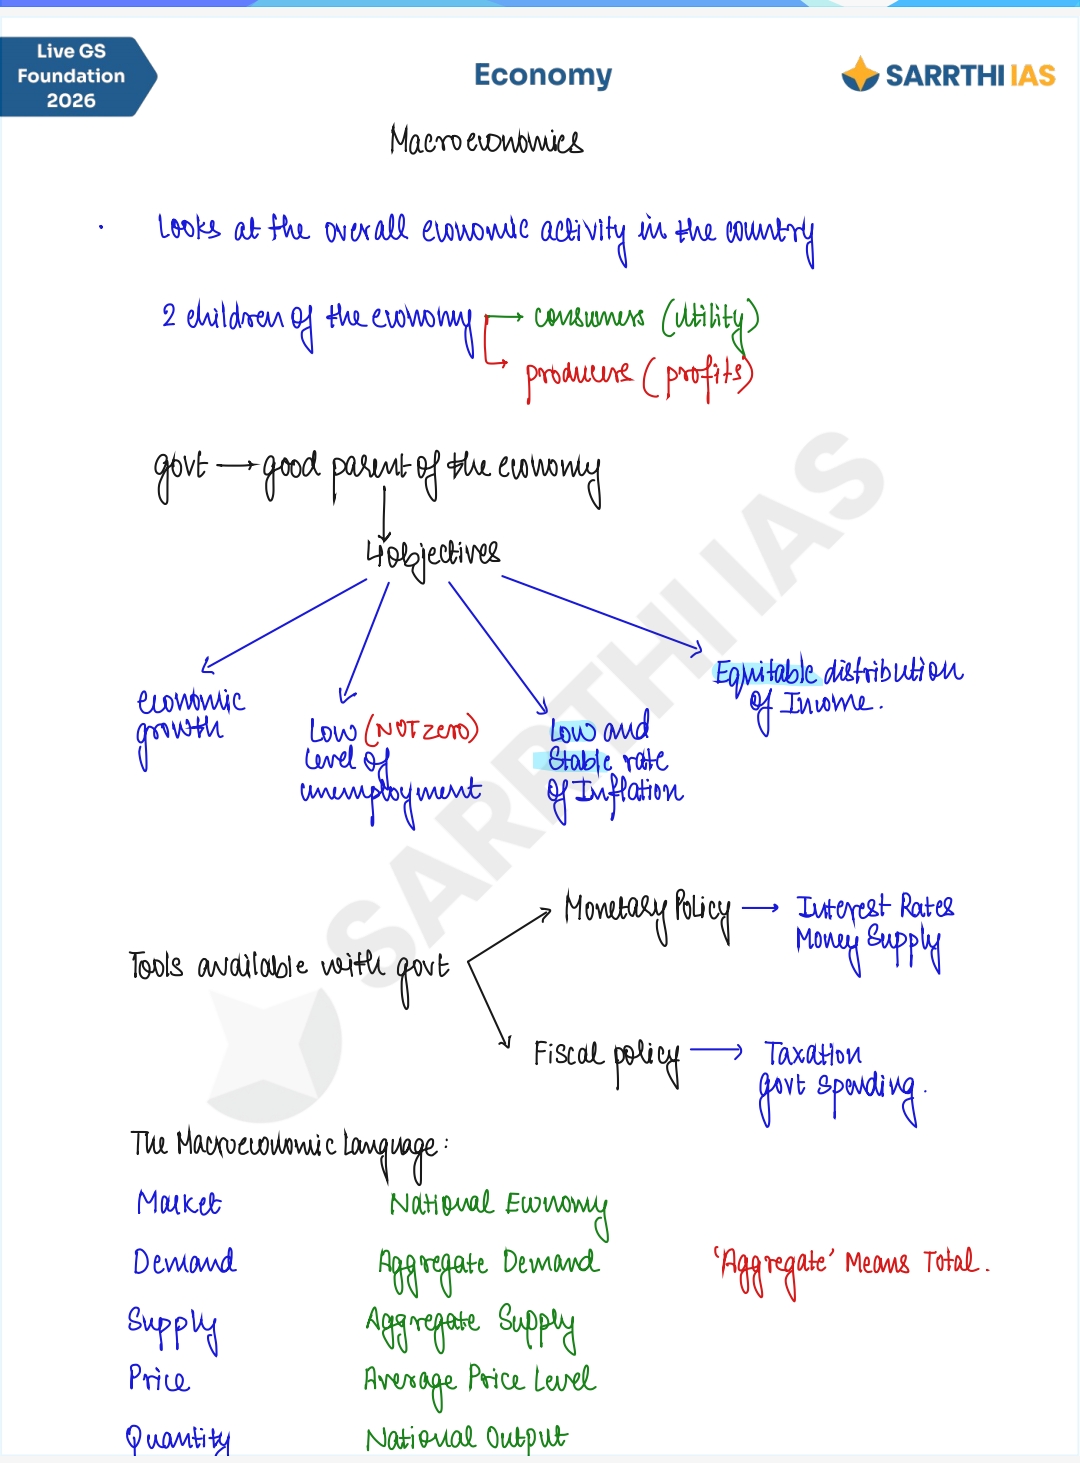 Live GS
Foundation
2026
Economy
SARRTHI IAS
Macroeconomics
Looks at the overall economic activity in the country
2 children of the economy → consumers (utility)
→ producers (profits)
govt → good parent of the economy
4 objectives
economic
growth
Low (NOT zero)
level of
unemployment
Low and
Stable rate
of Inflation
Equitable distribution
of Income.
Tools available with govt
Monetary Policy → Interest Rates
Money Supply
Fiscal policy → Taxation
govt spending.
The Macroeconomic Language:
Market National Economy
Demand Aggregate Demand 'Aggregate' Means Total.
Supply Aggregate Supply
Price Average Price Level
Quantity National Output
SARRTHI IAS